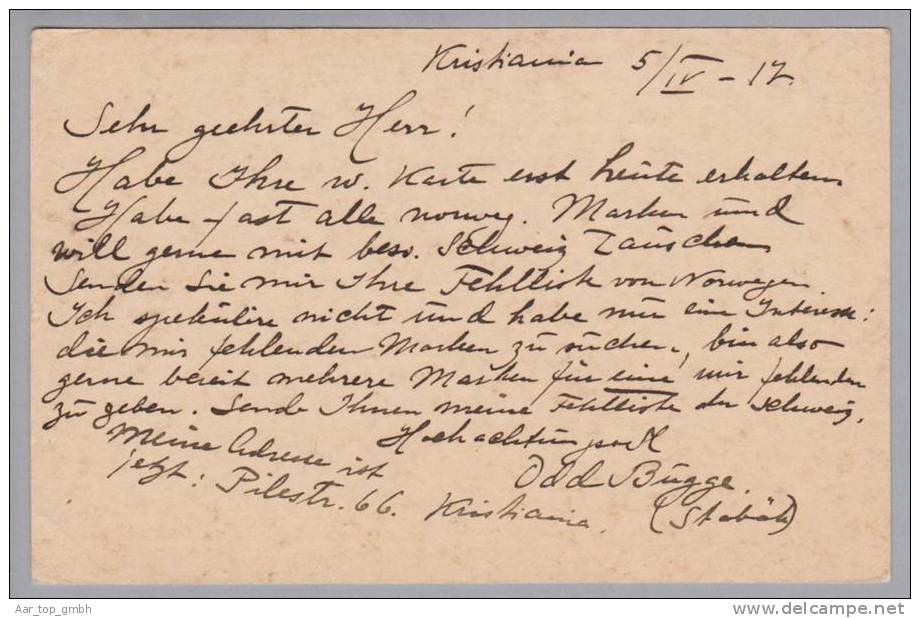 Kristiania 5/IV - 17.
Sehr geehrter Herr!
Habe Ihre w. Karte erst heute erhalten.
Habe fast alle norweg. Marken und
will gerne mit bess. Schweiz tauschen
Senden Sie mir Ihre Fehlliste von Norwegen.
Ich spekulire nicht und habe nur eine Interesse:
die mir fehlenden Marken zu suchen, bin also
gerne bereit mehrere Marken für eine mir fehlenden
zu geben. Sende Ihnen meine Fehlliste der Schweiz.
Hochachtungsvoll
Meine Adresse ist
jetzt: Pilestr. 66. Kristiania.
Odd Bugge.
(Stabäk)
Aar_top_gmbh
www.delcampe.net